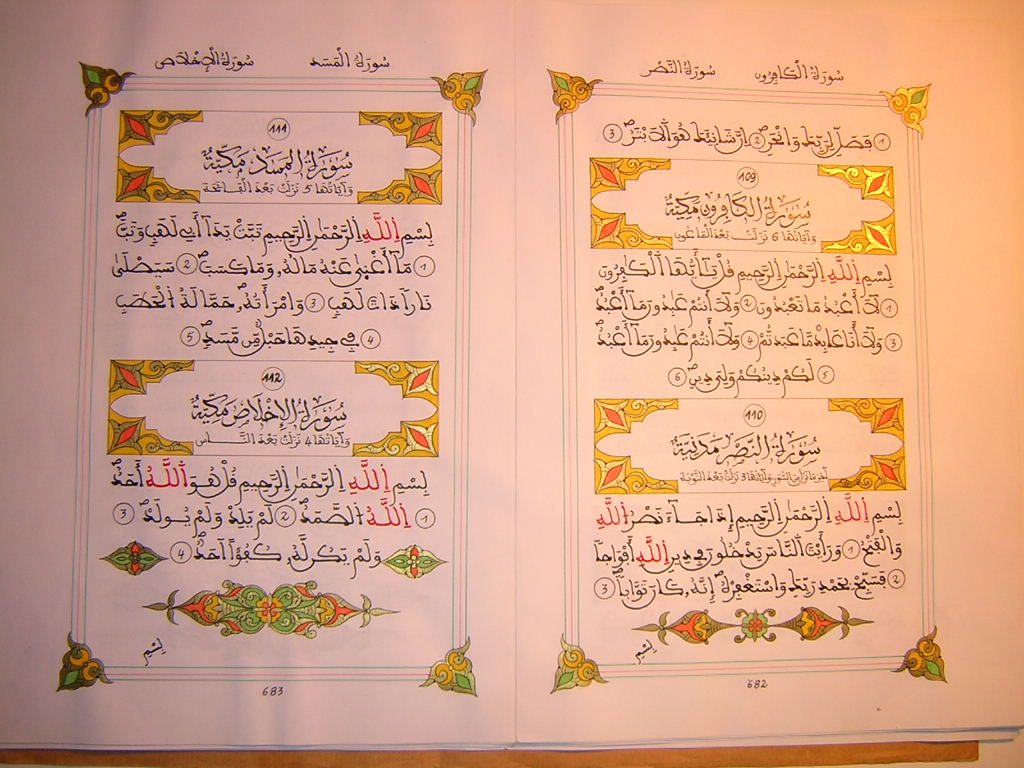 سُورَةُ الْكَافِرُونَ سُورَةُ النَّصْرِ
1 فَصَلِّ لِرَبِّكَ وَانْحَرْ 2 إِنَّ شَانِئَكَ هُوَ الْأَبْتَرُ 3
109
سُورَةُ الْكَافِرُونَ مَكِّيَّةٌ
وَآيَاتُهَا 6 نَزَلَتْ بَعْدَ الْمَاعُونِ
بِسْمِ اِللَّهِ اِلرَّحْمَٰنِ اِلرَّحِيمِ قُلْ يَٰٓأَيُّهَا اَلْكَٰفِرُونَ
1 لَآ أَعْبُدُ مَا تَعْبُدُونَ 2 وَلَآ أَنتُمْ عَٰبِدُونَ مَآ أَعْبُدُ
3 وَلَآ أَنَا عَابِدٌ مَّا عَبَدتُّمْ 4 وَلَآ أَنتُمْ عَٰبِدُونَ مَآ أَعْبُدُ
5 لَكُمْ دِينُكُمْ وَلِيَ دِينِ 6
110
سُورَةُ النَّصْرِ مَدَنِيَّةٌ
وَآيَاتُهَا 3 نَزَلَتْ بَعْدَ التَّوْبَةِ
بِسْمِ اِللَّهِ اِلرَّحْمَٰنِ اِلرَّحِيمِ إِذَا جَآءَ نَصْرُ اُللَّهِ
وَالْفَتْحُ 1 وَرَأَيْتَ اَلنَّاسَ يَدْخُلُونَ فِي دِينِ اِللَّهِ أَفْوَاجاً
2 فَسَبِّحْ بِحَمْدِ رَبِّكَ وَاسْتَغْفِرْهُ إِنَّهُۥ كَانَ تَوَّاباً 3
بِسْمِ
682
سُورَةُ الْمَسَدِ سُورَةُ الْإِخْلَاصِ
111
سُورَةُ الْمَسَدِ مَكِّيَّةٌ
وَآيَاتُهَا 5 نَزَلَتْ بَعْدَ الْفَاتِحَةِ
بِسْمِ اِللَّهِ اِلرَّحْمَٰنِ اِلرَّحِيمِ تَبَّتْ يَدَآ أَبِي لَهَبٍ وَتَبَّ
1 مَآ أَغْنَىٰ عَنْهُ مَالُهُۥ وَمَا كَسَبَ 2 سَيَصْلَىٰ
نَاراً ذَاتَ لَهَبٍ 3 وَامْرَأَتُهُۥ حَمَّالَةُ اُلْحَطَبِ
4 فِي جِيدِهَا حَبْلٌ مِّن مَّسَدٍ 5
112
سُورَةُ الْإِخْلَاصِ مَكِّيَّةٌ
وَآيَاتُهَا 4 نَزَلَتْ بَعْدَ النَّاسِ
بِسْمِ اِللَّهِ اِلرَّحْمَٰنِ اِلرَّحِيمِ قُلْ هُوَ اَللَّهُ أَحَدٌ
1 اِللَّهُ اُلصَّمَدُ 2 لَمْ يَلِدْ وَلَمْ يُولَدْ 3
وَلَمْ يَكُن لَّهُۥ كُفُؤاً أَحَدٌ 4
بِسْمِ
683